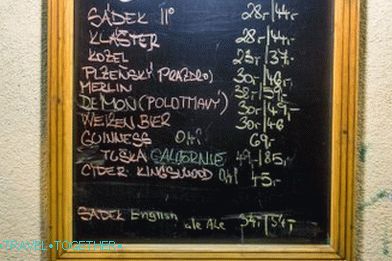 SÁDEK 11° 28,-/44,-
KLÁŠTER 28,-/44,-
KOZEL 23,-/37,-
PLZEŇSKÝ PRAZDROJ 30,-/46,-
MERLIN 38,-/59,-
DEMON (POLOTMAVÝ) 30,-/49,-
WEIZEN BIER 30,-/46
GUINNESS 0,4l 69,-
TUSKA CALIFORNIE 49,-/85,-
CIDER KINGSWOOD 0,4l 45,-
SÁDEK English ale Ale 34,-/54,-
TRAVEL-TOGETHER